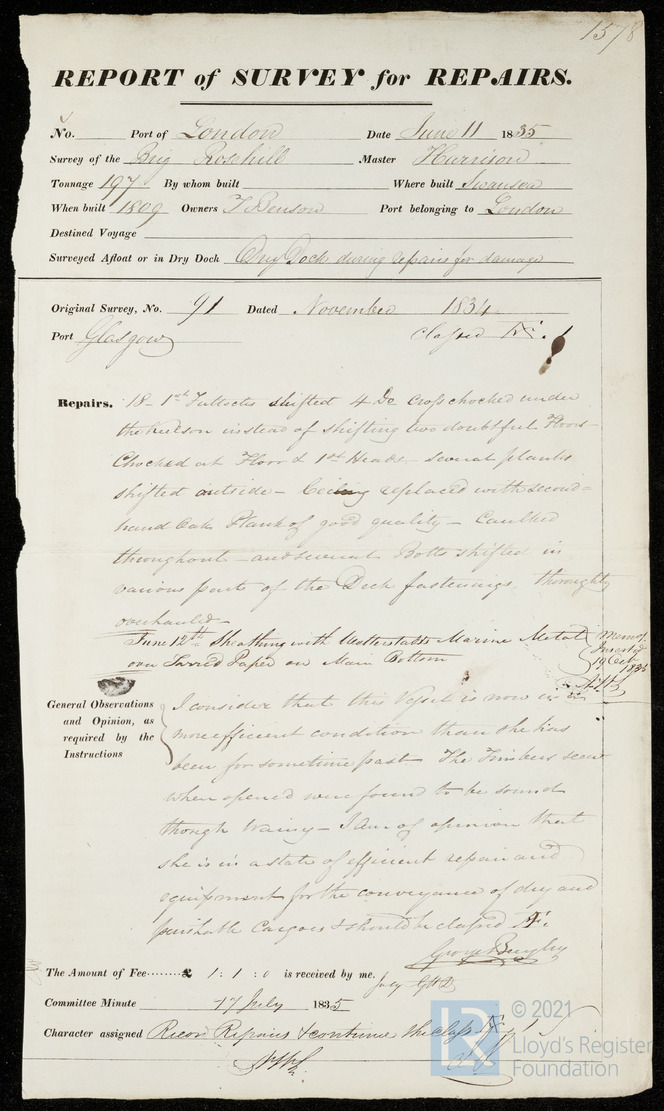 1578
REPORT of SURVEY for REPAIRS.
No. Port of London Date June 11 1835
Survey of the Brig Rosehill Master Harrison
Tonnage 197 By whom built Where built Swansea
When built 1809 Owners T Benson Port belonging to London
Destined Voyage
Surveyed Afloat or in Dry Dock Dry Dock during repairs for damage
Original Survey, No. 91 Dated November 1834
Port Glasgow classed Æ. 1
Repairs. 18 - 1st Futtocks shifted 4 Do Cross chocked under
the Keelson instead of shifting two doubtful Floors
Chocked at Floor & 1st Heads - several planks
shifted outside - Ceiling replaced with second=
hand Oak Plank of good quality - Caulked
throughout - and several Bolts shifted in
various parts of the Deck fastenings thoroughly
overhauled -
June 12th Sheathing with Marine Metal
over Tarred Paper on Main Bottom
Memo
Inserted
19 Oct
1835
General Observations
and Opinion, as
required by the
Instructions
I consider that this Vessel is now in a
more efficient condition than she has
been for sometime past The Timbers seen
when opened were found to be sound
though wainy - I am of opinion that
she is in a state of efficient repair and
equipment for the conveyance of dry and
perishable Cargoes & should be classed Æ1
George Bayley
The Amount of Fee........£ 1 : 1 : 0 is received by me,
Committee Minute 17 July 1835
Character assigned Record Repairs & continue the class Æ 1
© 2021
Lloyd's Register
Foundation